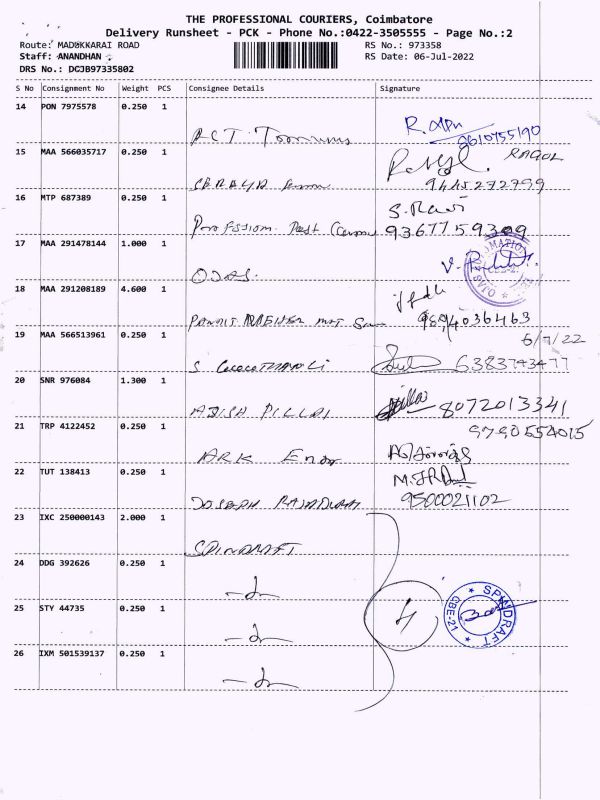 THE PROFESSIONAL COURIERS, Coimbatore
Delivery Runsheet - PCK - Phone No.:0422-3505555 - Page No.:2
Route: MADUKKARAI ROAD RS No.: 973358
Staff: ANANDHAN RS Date: 06-Jul-2022
DRS No.: DCJB97335802
S No Consignment No Weight PCS Consignee Details Signature
14 PON 7975578 0.250 1
15 MAA 566035717 0.250 1
RAGUL
9445272799
16 MTP 687389 0.250 1
S. Ravi
9367759309
17 MAA 291478144 1.000 1
OJAS.
18 MAA 291208189 4.600 1
9894036463
19 MAA 566513961 0.250 1
6/7/22
6383743477
20 SNR 976084 1.300 1
ADISH PILLAI 8072013341
21 TRP 4122452 0.250 1
9790554015
ARK
22 TUT 138413 0.250 1
JOSEPH 9500021102
23 IXC 250000143 2.000 1
SPINDRAFT
24 DDG 392626 0.250 1
4
SPINDRAFT
CBE-21
25 STY 44735 0.250 1
26 IXM 501539137 0.250 1